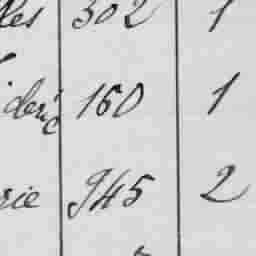 les 302 1
deric 160 1
rie 945 2